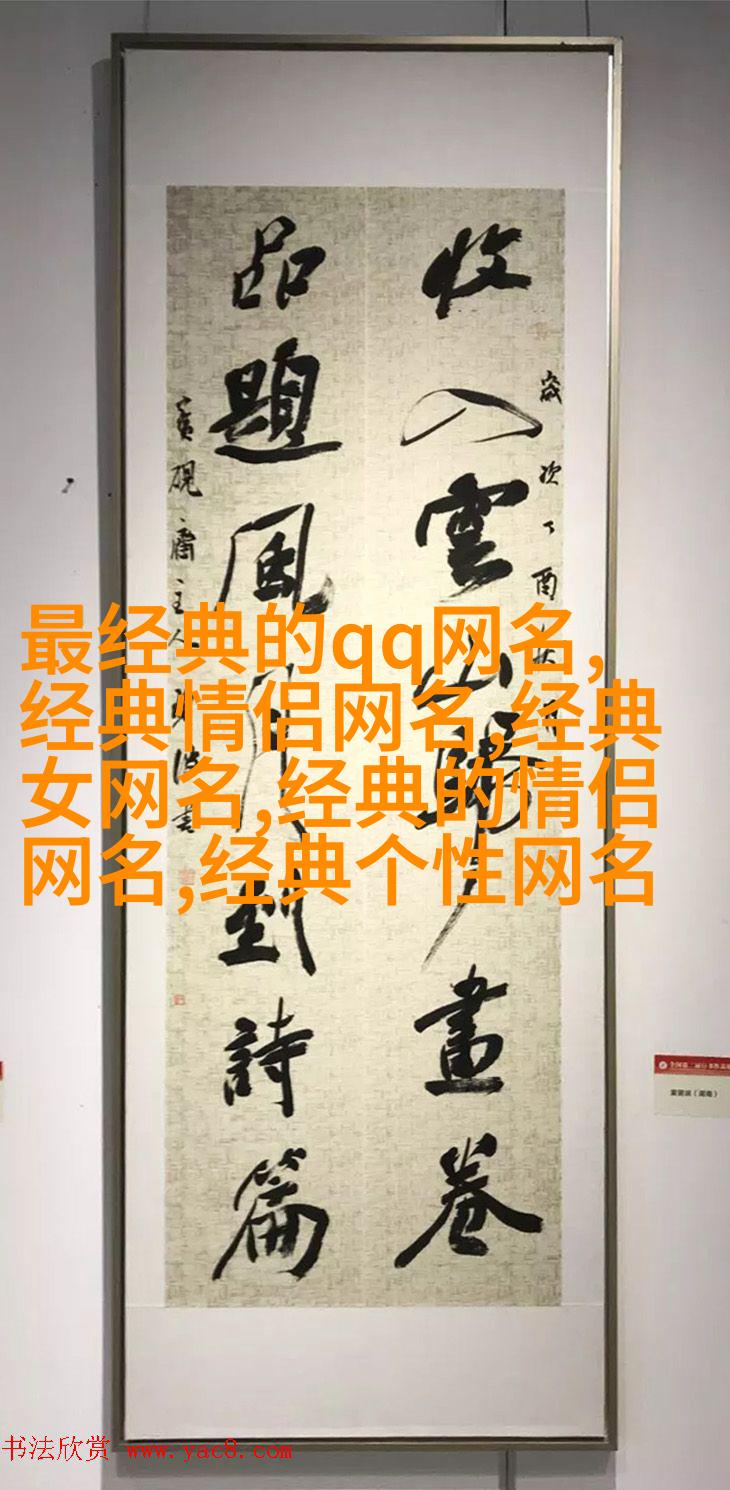 收入雲山歸畫卷
品題風月到詩篇
最经典的qq网名,
经典情侣网名,经典
女网名,经典的情侣
网名,经典个性网名
歲次丁酉
賓硯齋主人
書
书法欣赏 www.yac8.com